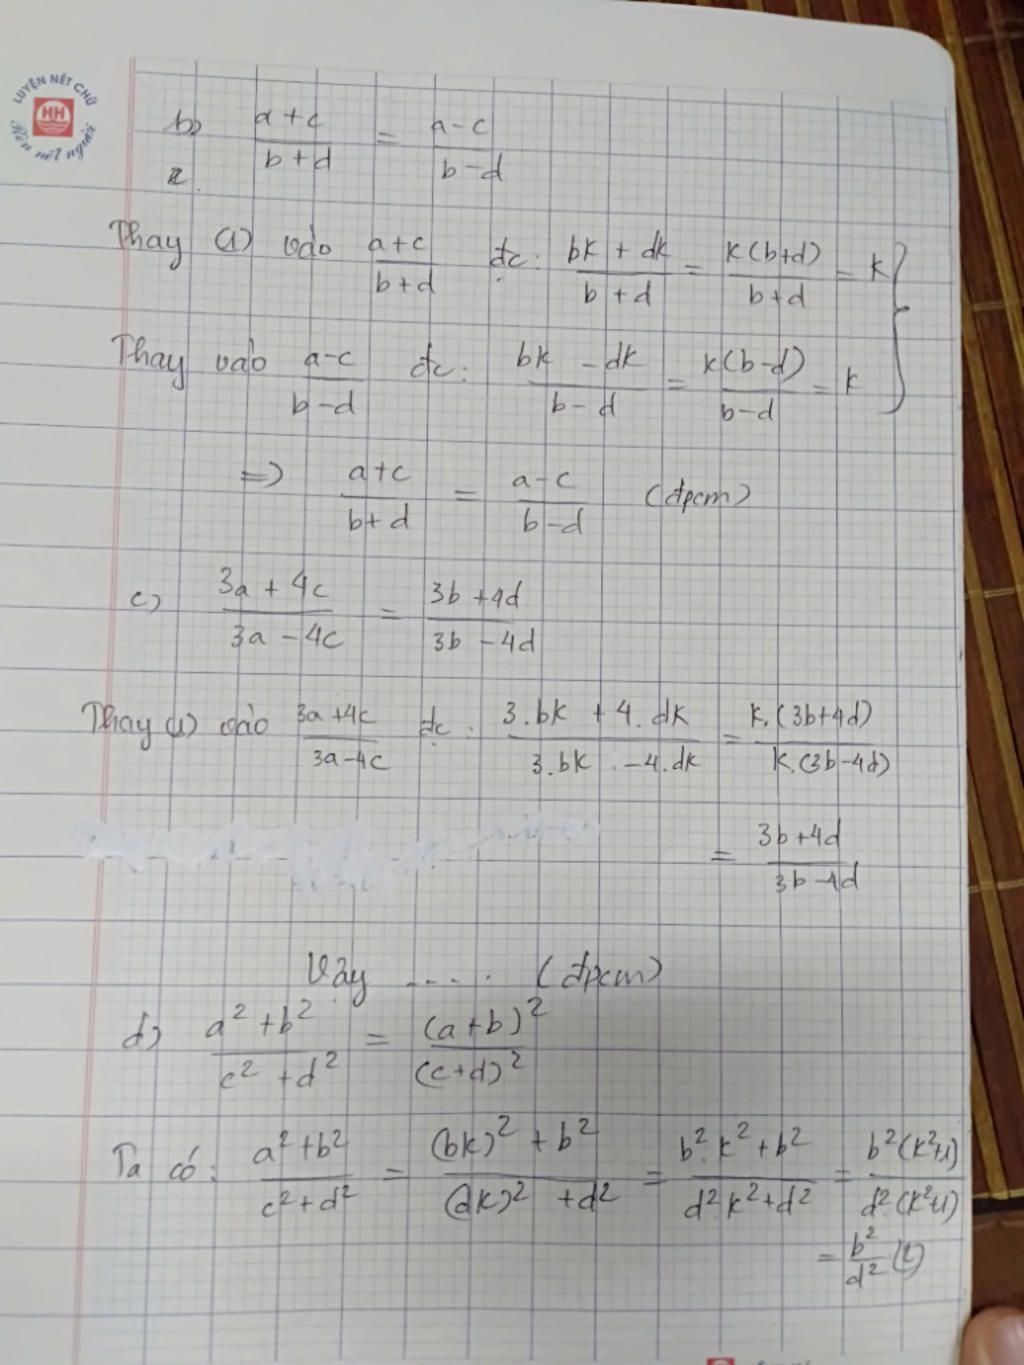 LUYỆN NÉT CHỮ
HH
Rèn nết người
b) (a+c)/(b+d) = (a-c)/(b-d)
Thay (1) vào (a+c)/(b+d) đc: (bk + dk)/(b+d) = k(b+d)/(b+d) = k
Thay vào (a-c)/(b-d) đc: (bk - dk)/(b-d) = k(b-d)/(b-d) = k
=> (a+c)/(b+d) = (a-c)/(b-d) (đpcm)
c) (3a + 4c)/(3a - 4c) = (3b + 4d)/(3b - 4d)
Thay (1) vào (3a+4c)/(3a-4c) đc: (3.bk + 4.dk)/(3.bk - 4.dk) = k.(3b+4d)/k.(3b-4d)
= (3b+4d)/(3b-4d)
Vậy .... (đpcm)
d) (a² + b²)/(c² + d²) = (a+b)²/(c+d)²
Ta có: (a²+b²)/(c²+d²) = ((bk)² + b²)/((dk)² + d²) = (b².k² + b²)/(d².k² + d²) = b²(k²+1)/d².(k²+1)
= b²/d²